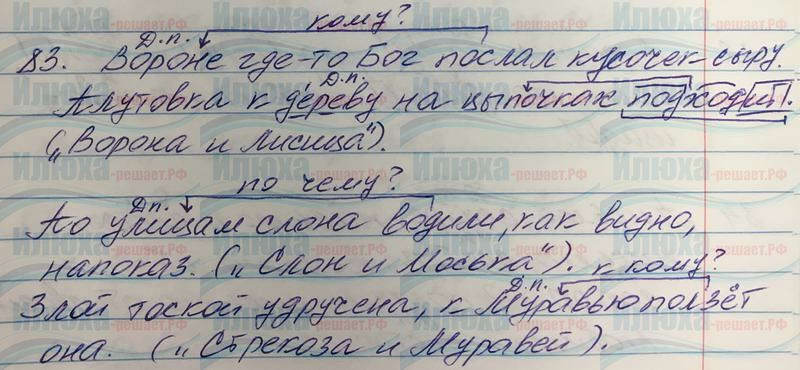 кому?
Д.п.
83. Вороне где-то Бог послал кусочек сыру.
Д.п.
Плутовка к дереву на цыпочках подходит.
(„Ворона и Лисица").
по чему?
Д.п.
По улицам слона водили, как видно,
напоказ. („Слон и Моська"). к кому?
Д.п.
Злой тоской удручена, к Муравью ползёт
она. („Стрекоза и Муравей").
Илюха-решает.РФ